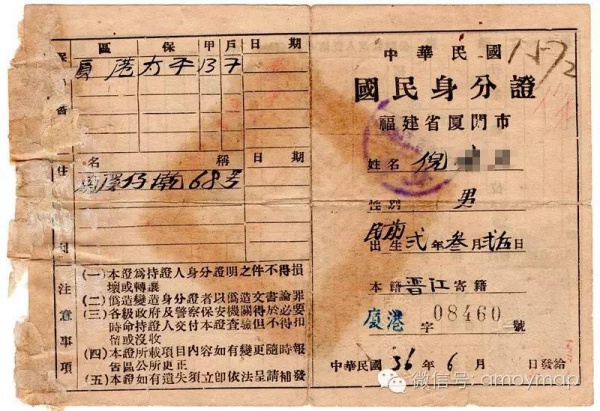 區 保 甲 戶 日 期
廈港 太平 13 7
住
名 稱 日 期
68号
注意事項
(一)本證爲持證人身分證明之件不得損
壞或轉讓
(二)僞造變造身分證者以僞造文書論罪
(三)各級政府及警察保安機關得於必要
時命持證人交付本證查驗但不得扣
留或沒收
(四)本證所載項目內容如有變更隨時報
告區公所更正
(五)本證如有遺失須立卽依法呈請補發
中華民國
國民身分證
福建省厦門市
姓名 倪
性別 男
出生 民前 弍年 叁月 弍伍日
本籍 晋江 寄籍
廈港 字 08460 號
中華民國 36 年 6 月 日發給
微信号: ampymap